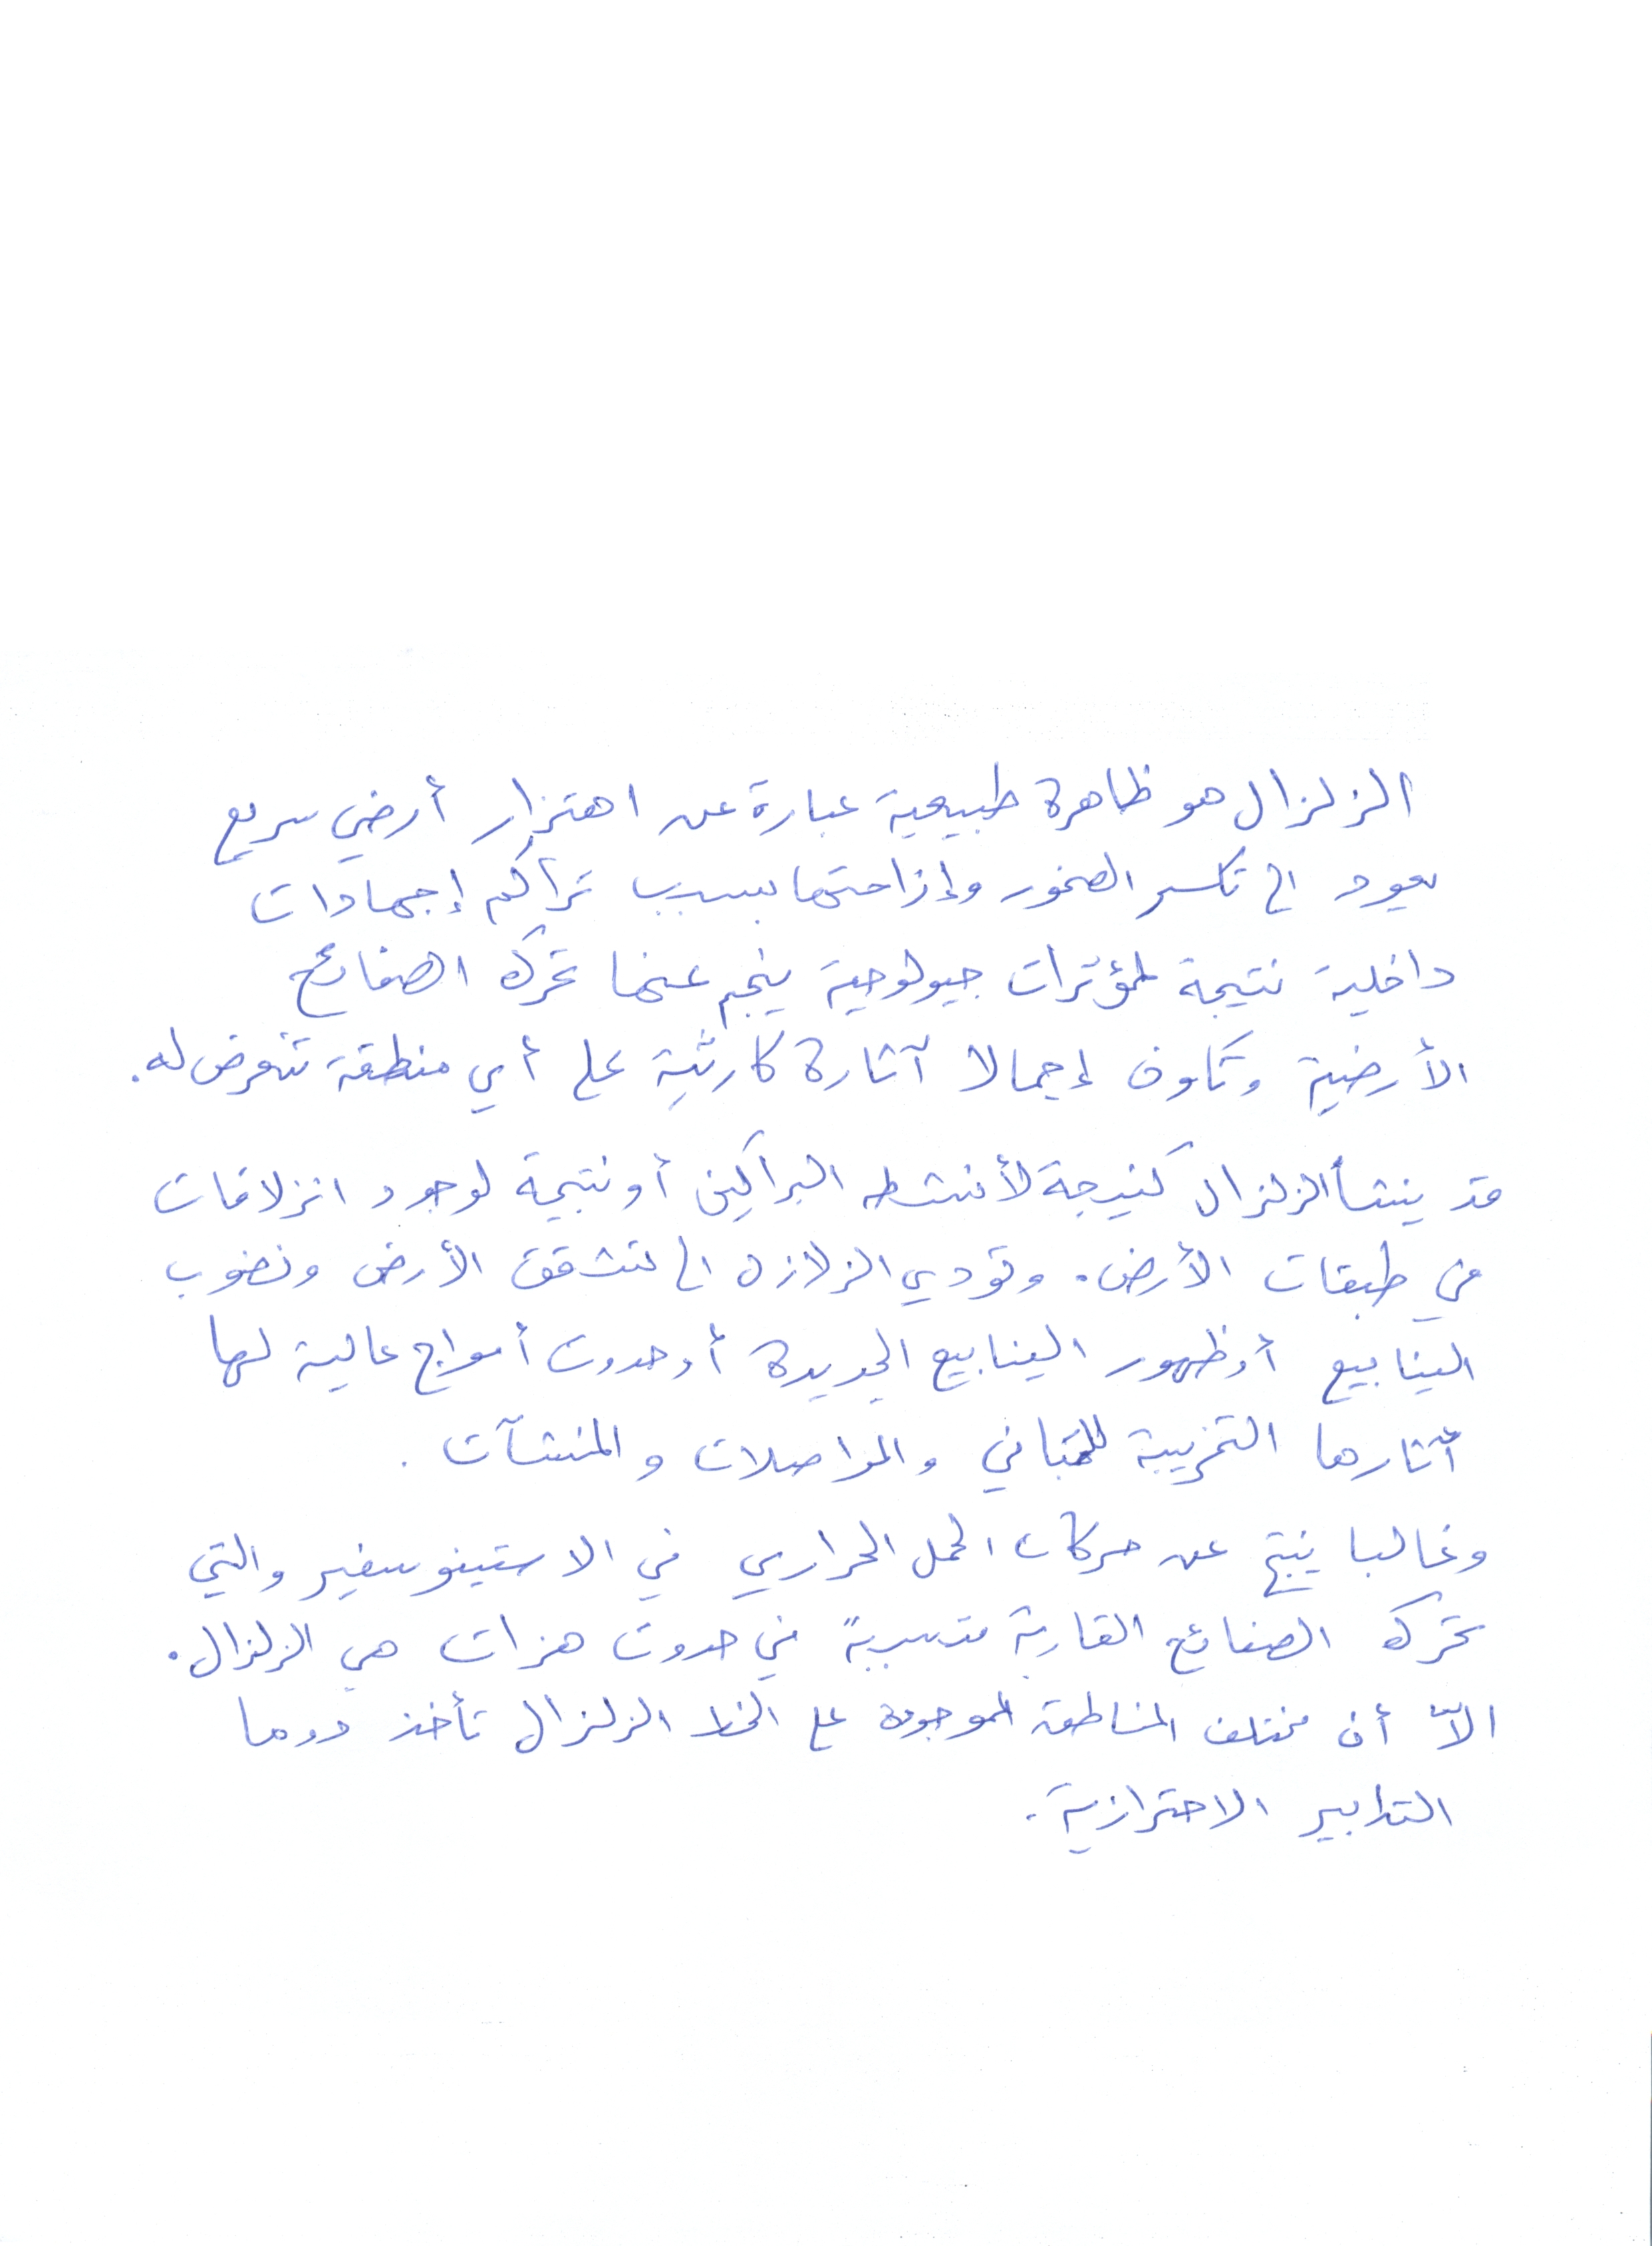 الزلزال هو ظاهرة طبيعية عبارة عن اهتزاز أرضي سريع
يعود الى تكسر الصخور وإزاحتها بسبب تراكم إجهادات
داخلية نتيجة لمؤثرات جيولوجية ينجم عنها تحرك الصفائح
الأرضية وتكون إجمالا آثاره كارثية على أي منطقة تتعرض له.
قد ينشأ الزلزال كنتيجة لأنشطة البراكين أو نتيجة لوجود انزلاقات
في طبقات الأرض. وتودي الزلازل الى تشقق الأرض ونضوب
الينابيع أو ظهور الينابيع الجديدة أو حدوث أمواج عالية لها
أثارها التخريبية للمباني والمواصلات والمنشآت.
وغالبا ينتج عن حركات الحمل الحراري في الاستينوسفير والتي
تحرك الصفائح القارية متسببة في حدوث هزات هي الزلزال.
الاّ أن مختلف المناطق الموجودة على الخط الزلزال تأخذ دوما
التدابير الاحترازية.